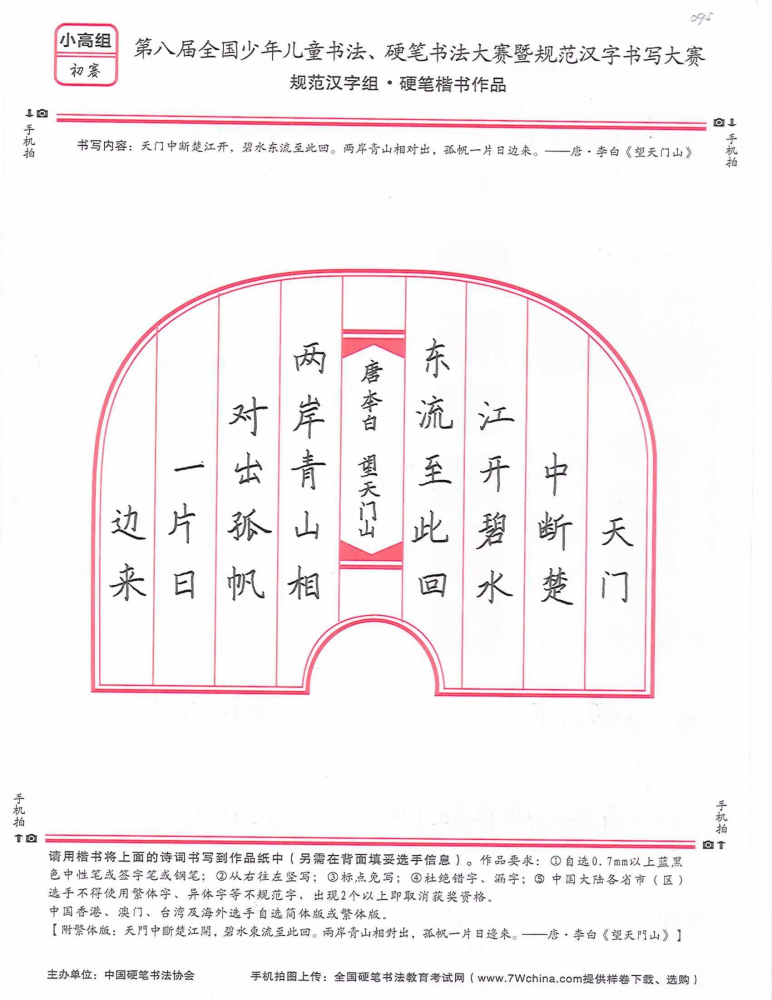 095
小高组
初赛
第八届全国少年儿童书法、硬笔书法大赛暨规范汉字书写大赛
规范汉字组·硬笔楷书作品
手机拍
手机拍
书写内容：天门中断楚江开，碧水东流至此回。两岸青山相对出，孤帆一片日边来。——唐·李白《望天门山》
天门
中断楚
江开碧水
东流至此回
唐李白 望天门山
两岸青山相
对出孤帆
一片日
边来
手机拍
手机拍
请用楷书将上面的诗词书写到作品纸中（另需在背面填妥选手信息）。作品要求：①自选0.7mm以上蓝黑
色中性笔或签字笔或钢笔；②从右往左竖写；③标点免写；④杜绝错字、漏字；⑤ 中国大陆各省市（区）
选手不得使用繁体字、异体字等不规范字，出现2个以上即取消获奖资格。
中国香港、澳门、台湾及海外选手自选简体版或繁体版。
【附繁体版：天門中斷楚江開，碧水東流至此回。兩岸青山相對出，孤帆一片日邊來。——唐·李白《望天門山》】
主办单位：中国硬笔书法协会
手机拍图上传：全国硬笔书法教育考试网（www.7Wchina.com提供样卷下载、选购）